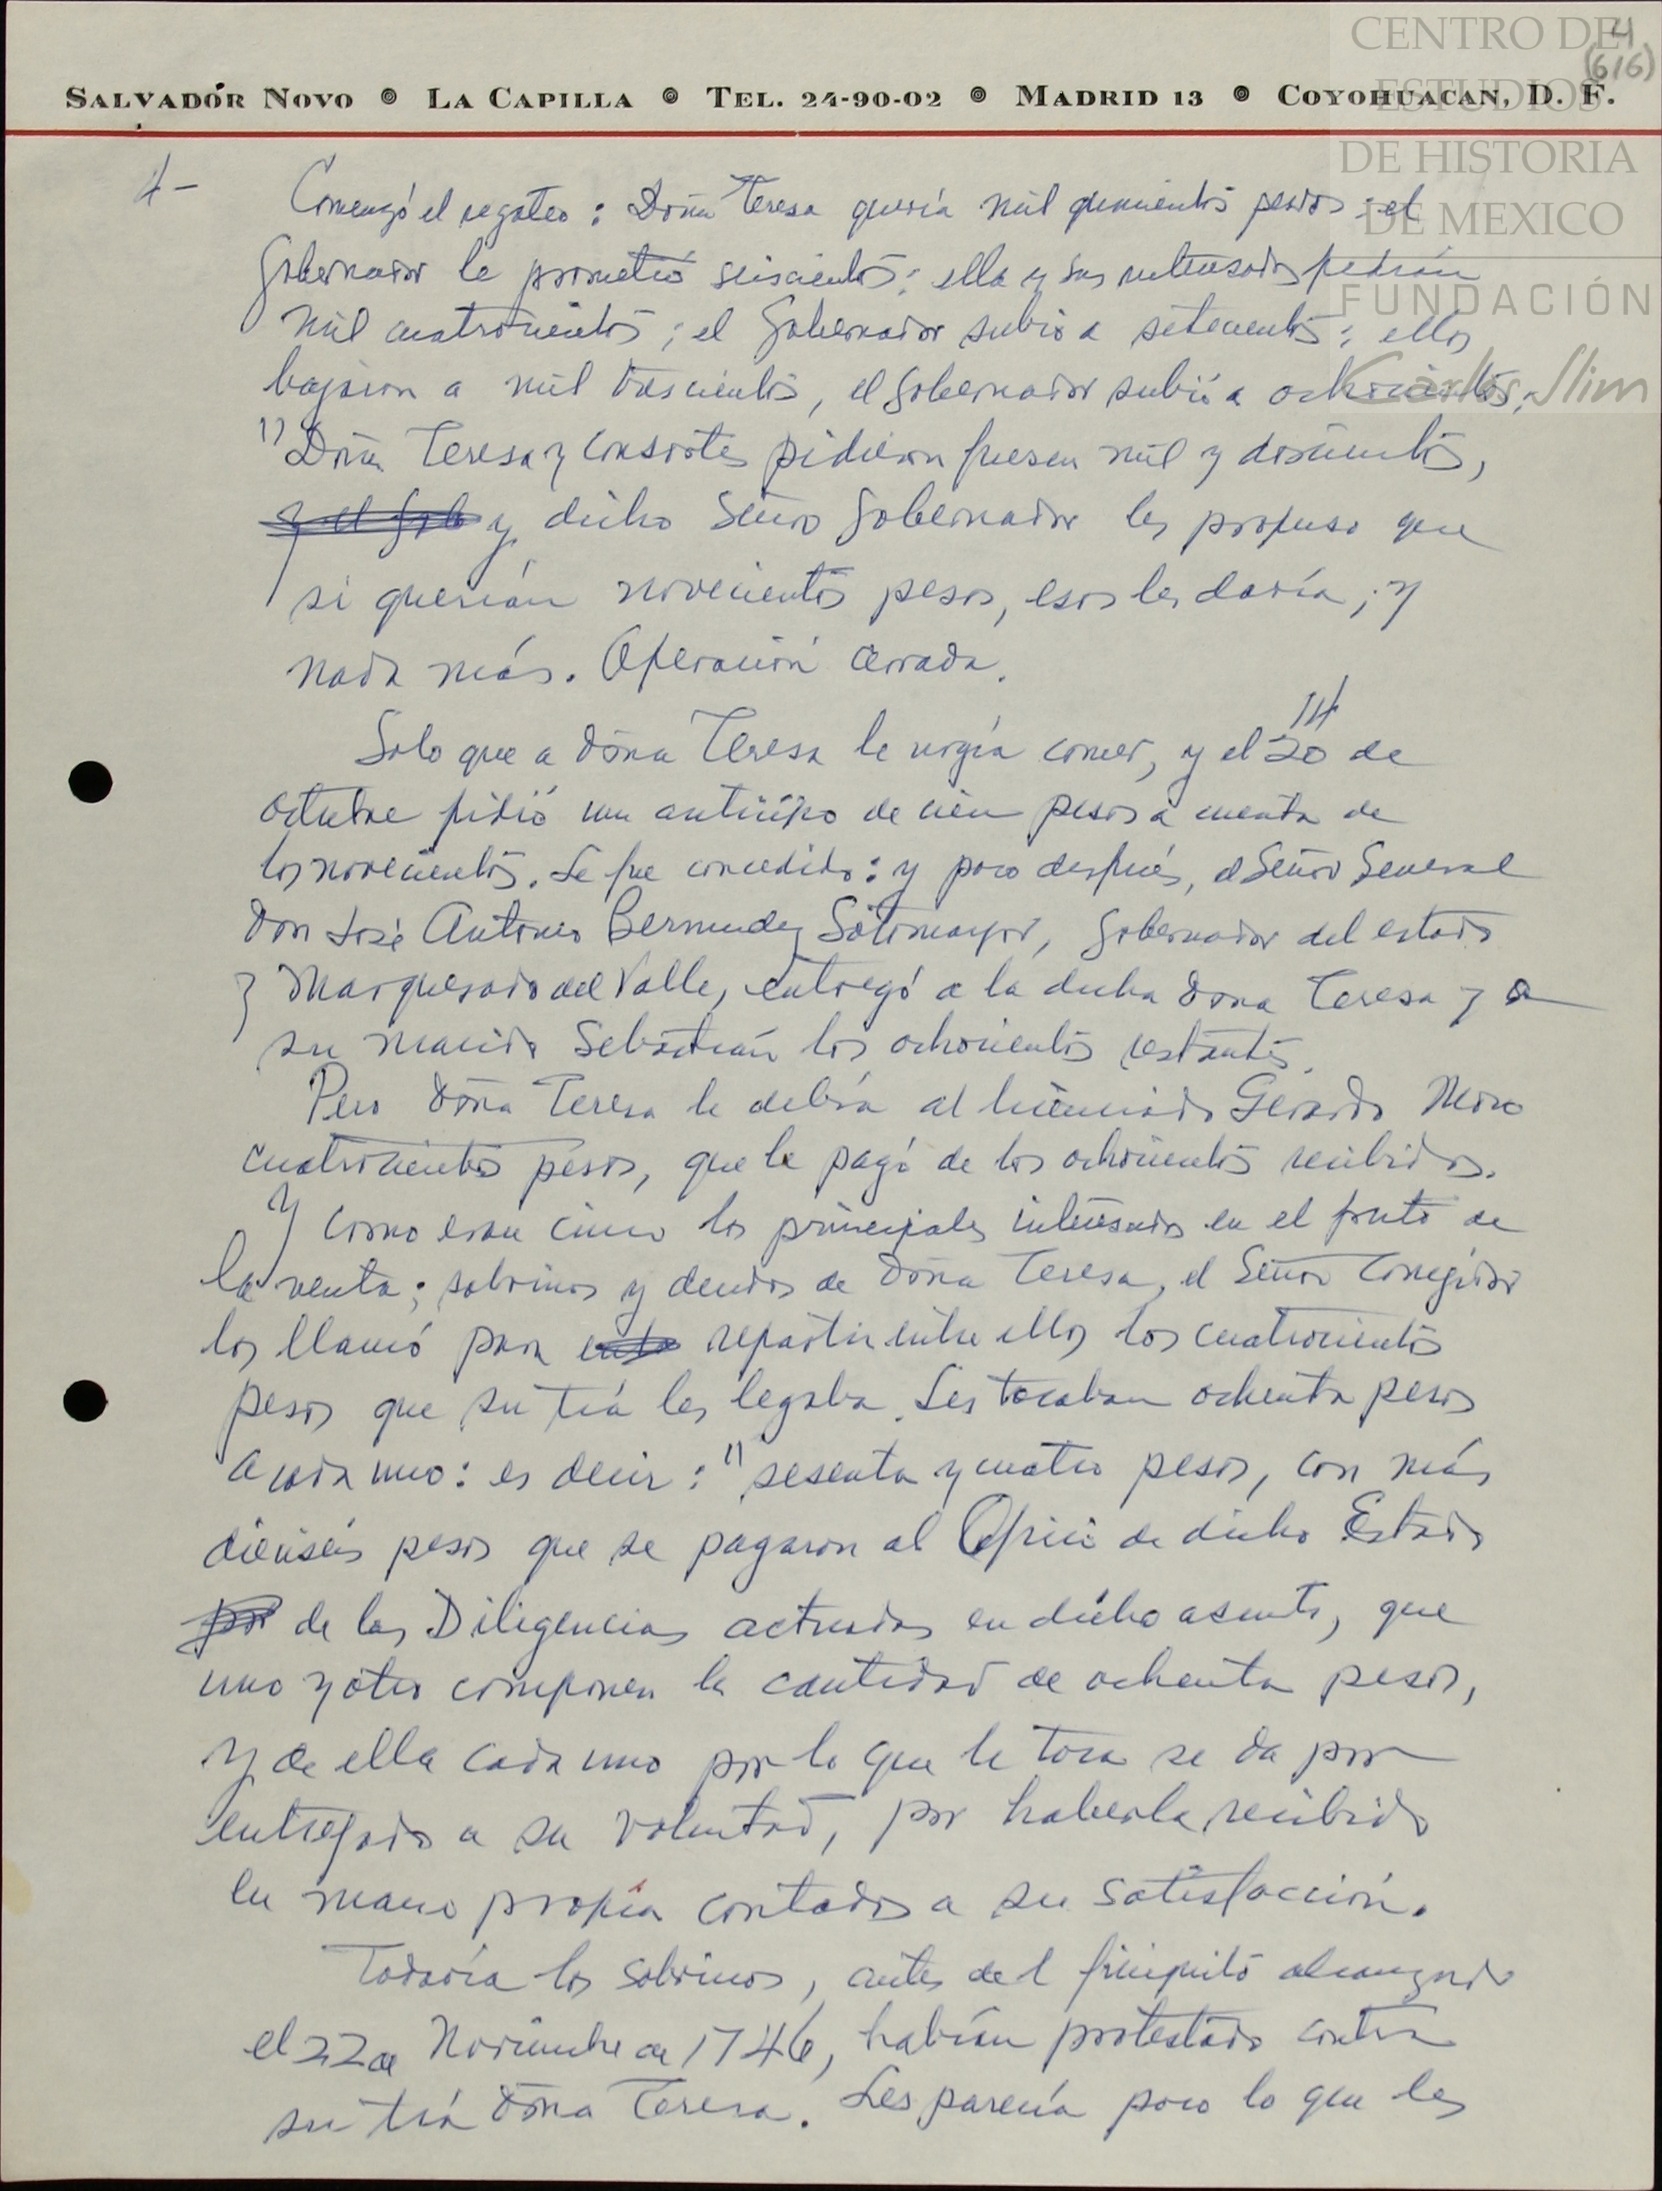 CENTRO DE
ESTUDIOS
DE HISTORIA
DE MEXICO
FUNDACIÓN
Carlos Slim
4
(616)
SALVADOR NOVO LA CAPILLA TEL. 24-90-02 MADRID 13 COYOHUACAN, D. F.
4-
Comenzó el regateo: Doña Teresa quería mil quinientos pesos; el
Gobernador le prometió seiscientos; ella y sus interesados pedían
mil cuatrocientos; el Gobernador subió a setecientos; ellos
bajaron a mil trescientos, el gobernador subió a ochocientos;
"Doña Teresa y consortes pidieron fuesen mil y doscientos,
y el Gob y dicho Señor Gobernador les propuso que
si querían novecientos pesos, esos les daría; y
nada más. Operación cerrada.
Solo que a doña Teresa le urgía comer, y el 20 de
octubre pidió un anticipo de cien pesos a cuenta de
los novecientos. Le fue concedido: y poco después, el Señor General
Don José Antonio Bermudez Sotomayor, Gobernador del estado
y Marquesado del Valle, entregó a la dicha doña Teresa y a
su marido Sebastián los ochocientos restantes.
Pero doña Teresa le debía al licenciado Gerardo Moro
cuatrocientos pesos, que le pagó de los ochocientos recibidos.
Y como eran cinco los principales interesados en el fruto de
la venta; sobrinos y deudos de doña Teresa, el Señor Corregidor
los llamó para repartir entre ellos los cuatrocientos
pesos que su tía les legaba. Les tocaban ochenta pesos
a cada uno: es decir: "sesenta y cuatro pesos, con más
dieciséis pesos que se pagaron al Oficio de dicho Estado
por de las Diligencias actuadas en dicho asunto, que
uno y otro componen la cantidad de ochenta pesos,
y de ella cada uno por lo que le toca se da por
entregado a su voluntad, por haberla recibido
en mano propia contados a su satisfacción.
Todavía los sobrinos, antes del finiquito alcanzado
el 22 de Noviembre de 1746, habían protestado contra
su tía doña Teresa. Les parecía poco lo que les